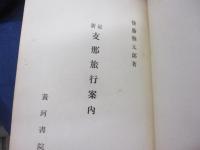 後藤朝太郎著
最新
支那旅行案内
黄河書院